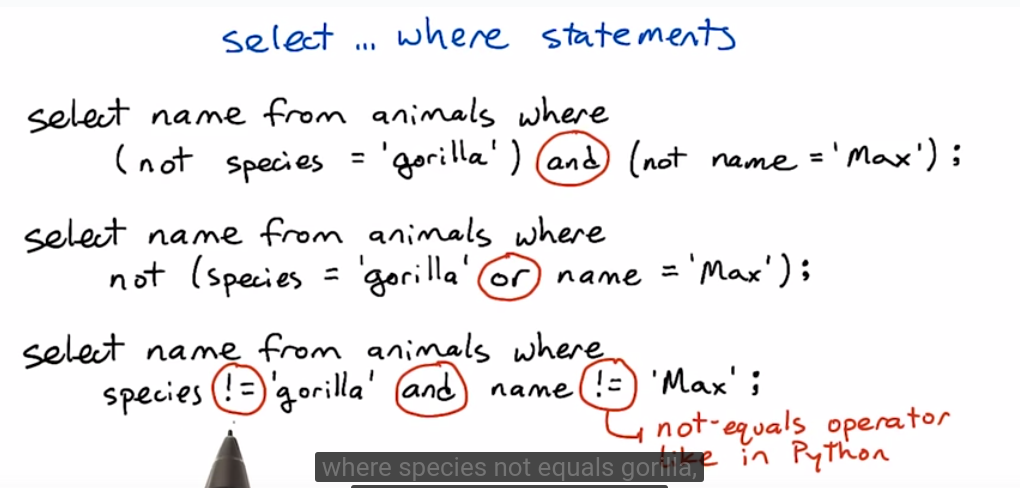 select ... where statements
select name from animals where
(not species = 'gorilla') and (not name = 'Max');
select name from animals where
not (species = 'gorilla' or name = 'Max');
select name from animals where
species != 'gorilla' and name != 'Max';
not-equals operator
like in Python
where species not equals gorilla,